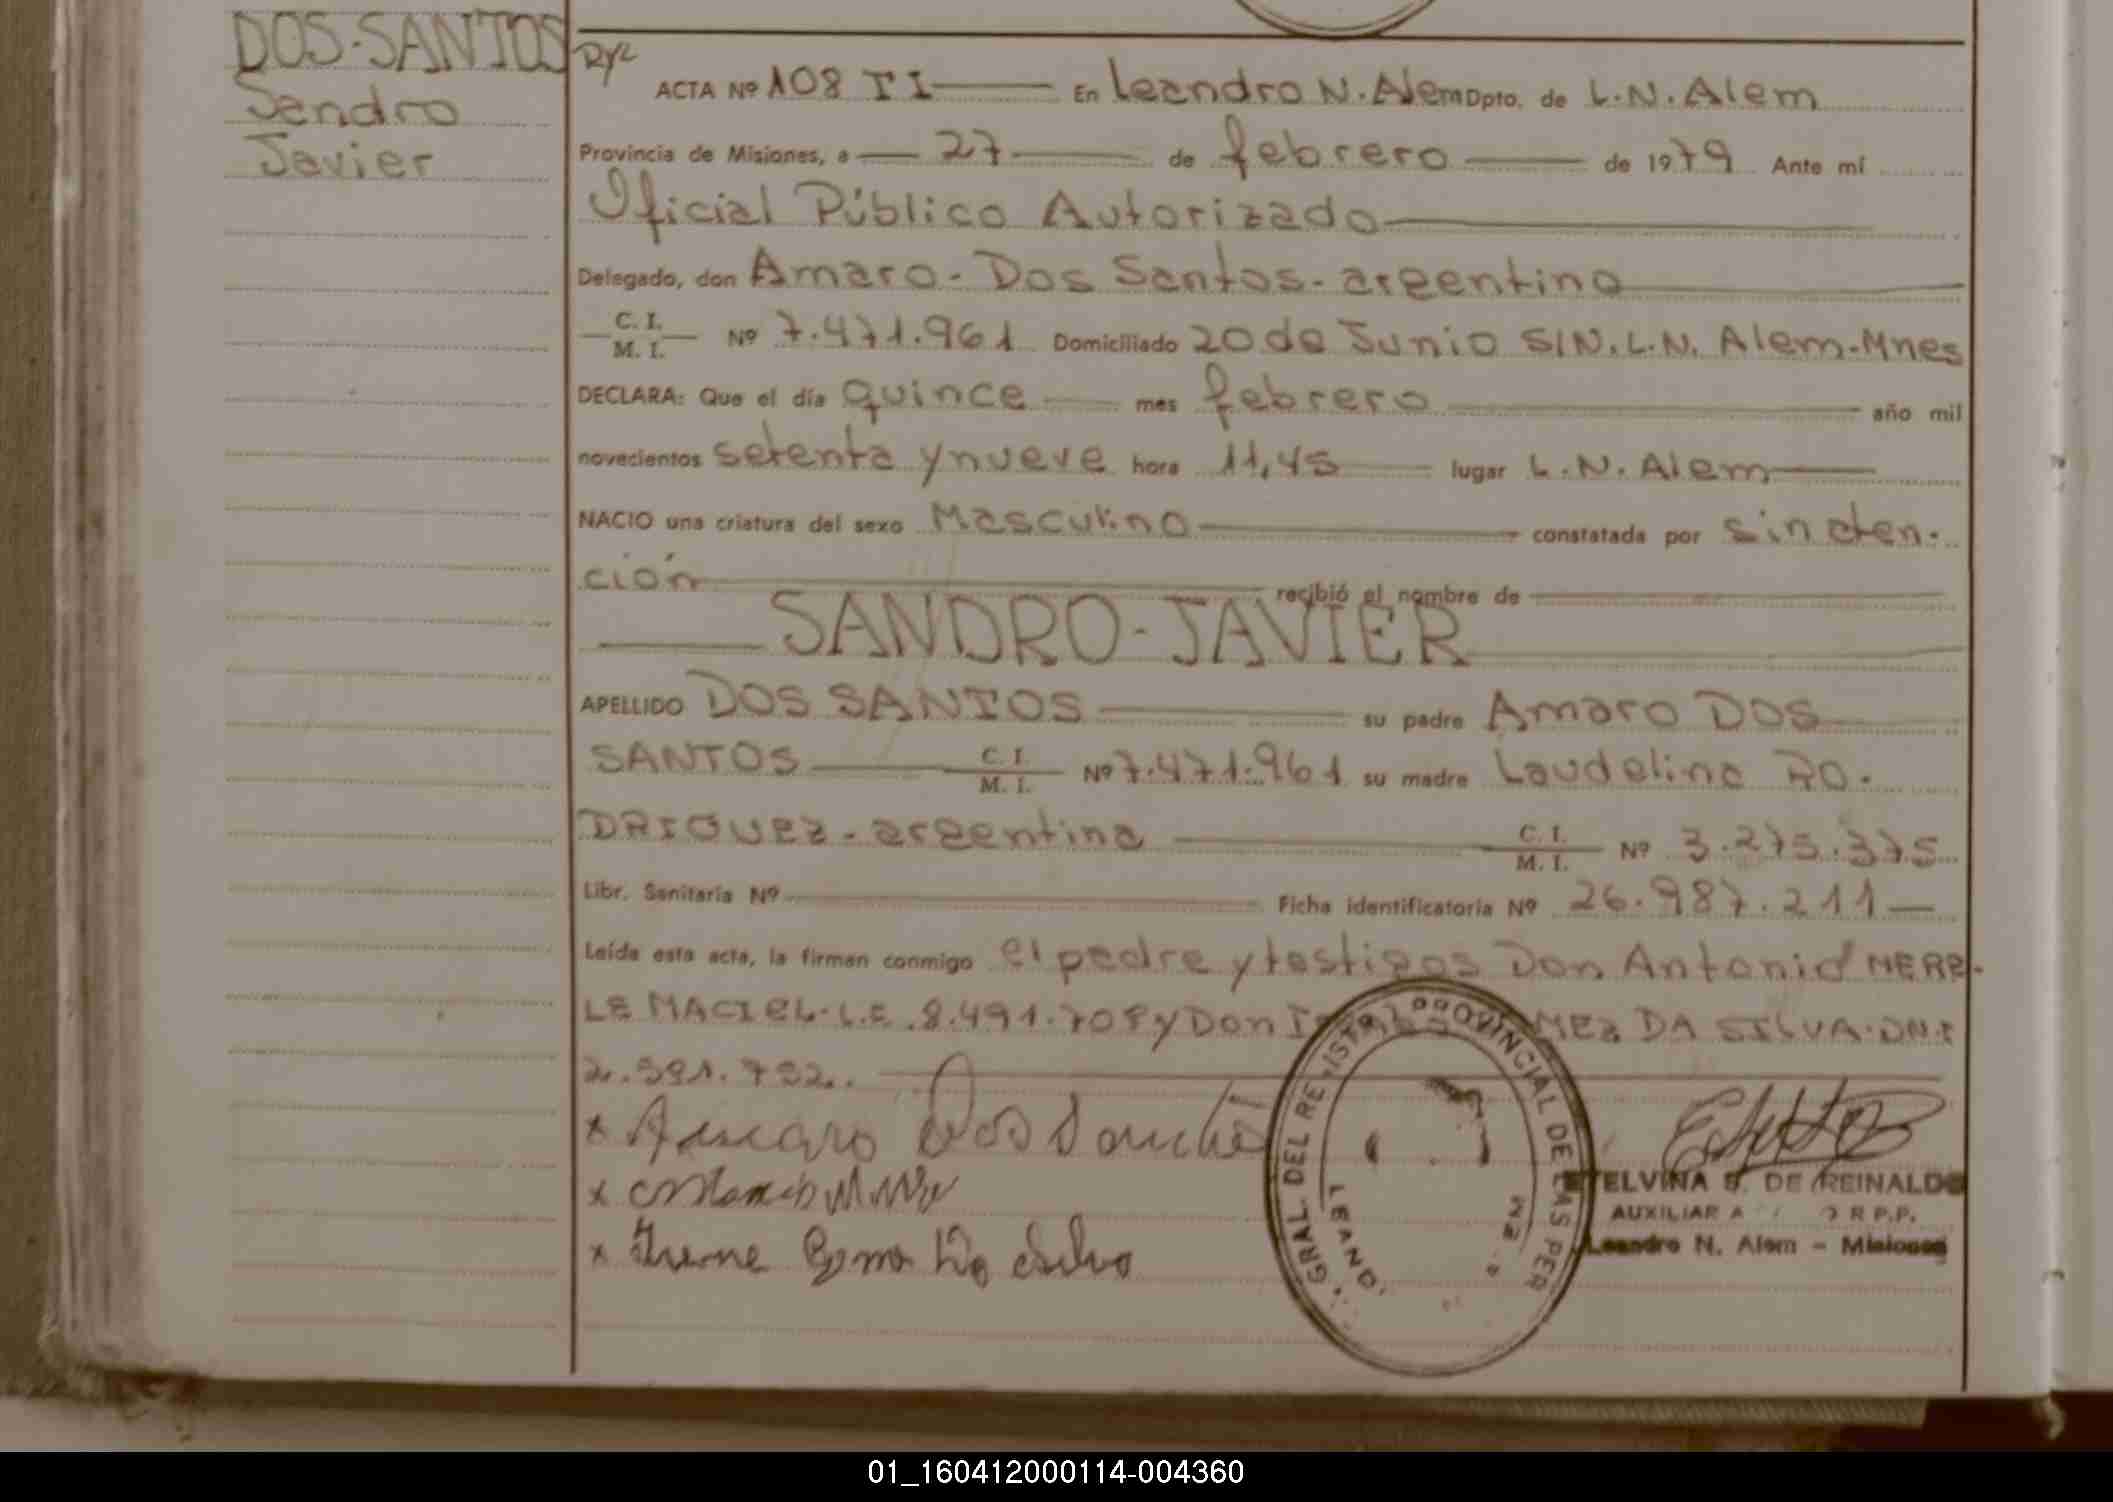 DOS-SANTOS
Sandro
Javier
RyL
ACTA Nº 108 TI En Leandro N. Alem Dpto. de L.N. Alem
Provincia de Misiones, a 27 de febrero de 1979 Ante mí
Oficial Público Autorizado
Delegado, don Amaro-Dos Santos-argentino
C. I.
M. I. Nº 7.471.961 Domiciliado 20 de Junio S/N. L.N. Alem-Mnes
DECLARA: Que el día quince mes febrero año mil
novecientos setenta y nueve hora 11,45 lugar L.N. Alem
NACIO una criatura del sexo Masculino constatada por sin aten-
ción recibió el nombre de
SANDRO-JAVIER
APELLIDO DOS SANTOS su padre Amaro DOS
SANTOS C. I. M. I. Nº 7.471.961 su madre Laudelina RO-
DRIGUEZ-argentina C. I. M. I. Nº 3.275.375
Libr. Sanitaria Nº Ficha identificatoria Nº 26.987.211
Leída esta acta, la firman conmigo el padre y testigos Don Antonio MERE-
LE MACIEL-L.E. 8.491.708 y Don DA SILVA-DNI
* Amaro Dos Santos
*
* Irene Gomes Da Silva
GRAL. DEL REGISTRO PROVINCIAL DE LAS PER
LEAND
ETELVINA S. DE REINALDO
AUXILIAR R.P.P.
Leandro N. Alem - Misiones
01_160412000114-004360